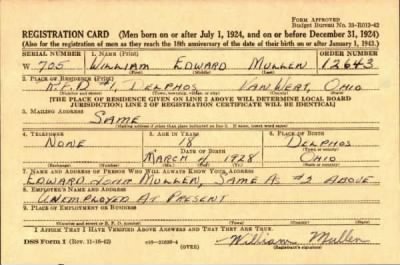 FORM APPROVED
Budget Bureau No. 33-R012-42
REGISTRATION CARD (Men born on or after July 1, 1924, and on or before December 31, 1924)
(Also for the registration of men as they reach the 18th anniversary of the date of their birth on or after January 1, 1943.)
SERIAL NUMBER 1. NAME (Print) ORDER NUMBER
W 705 WILLIAM EDWARD MULLEN 12643
(First) (Middle) (Last)
2. PLACE OF RESIDENCE (Print)
R.F.D #1, DELPHOS VAN WERT, OHIO
[THE PLACE OF RESIDENCE GIVEN ON LINE 2 ABOVE WILL DETERMINE LOCAL BOARD
JURISDICTION; LINE 2 OF REGISTRATION CERTIFICATE WILL BE IDENTICAL]
3. MAILING ADDRESS
SAME
[Mailing address if other than place indicated on line 2. If same, insert word same]
4. TELEPHONE 5. AGE IN YEARS 6. PLACE OF BIRTH
NONE 18 DELPHOS
DATE OF BIRTH
MARCH 1928 OHIO
7. NAME AND ADDRESS OF PERSON WHO WILL ALWAYS KNOW YOUR ADDRESS
EDWARD JOHN MULLEN, SAME AS #2 ABOVE
8. EMPLOYER'S NAME AND ADDRESS
UNEMPLOYED AT PRESENT
9. PLACE OF EMPLOYMENT OR BUSINESS
I AFFIRM THAT I HAVE VERIFIED ABOVE ANSWERS AND THAT THEY ARE TRUE.
DSS Form 1 (Rev. 11-16-42) (OVER) William Mullen
(Registrant's signature)